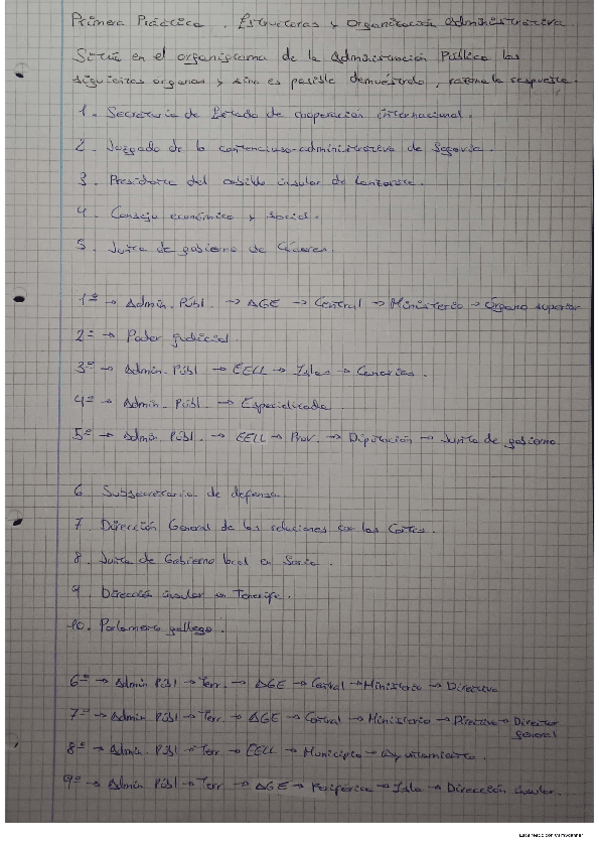 Primera Práctica. Estructuras y Organización Administrativa.
Sitúa en el organigrama de la Administración Pública los
siguientes órganos y si no es posible demuéstralo, razona la respuesta.
1. Secretaría de Estado de cooperación internacional.
2. Juzgado de lo contencioso-administrativo de Segovia.
3. Presidente del cabildo insular de Lanzarote.
4. Consejo económico y social.
5. Junta de gobierno de Cáceres.
1º → Admin. Públ. → AGE → Central → Ministerio → Órgano superior
2º → Poder judicial.
3º → Admin. Públ → EELL → Islas → Canarias.
4º → Admin. Públ. → Especializada.
5º → Admin. Públ. → EELL → Prov. → Diputación → Junta de gobierno
6. Subsecretaría de defensa.
7. Dirección General de las relaciones con las Cortes.
8. Junta de Gobierno local en Soria.
9. Dirección insular en Tenerife.
10. Parlamento gallego.
6º → Admin Públ → Terr. → AGE → Central → Ministerio → Directivo
7º → Admin Públ → Terr. → AGE → Central → Ministerio → Directivo → Director general
8º → Admin. Públ → Terr → EELL → Municipio → Ayuntamiento.
9º → Admin. Públ → Terr. → AGE → Periférica → Isla → Dirección insular.